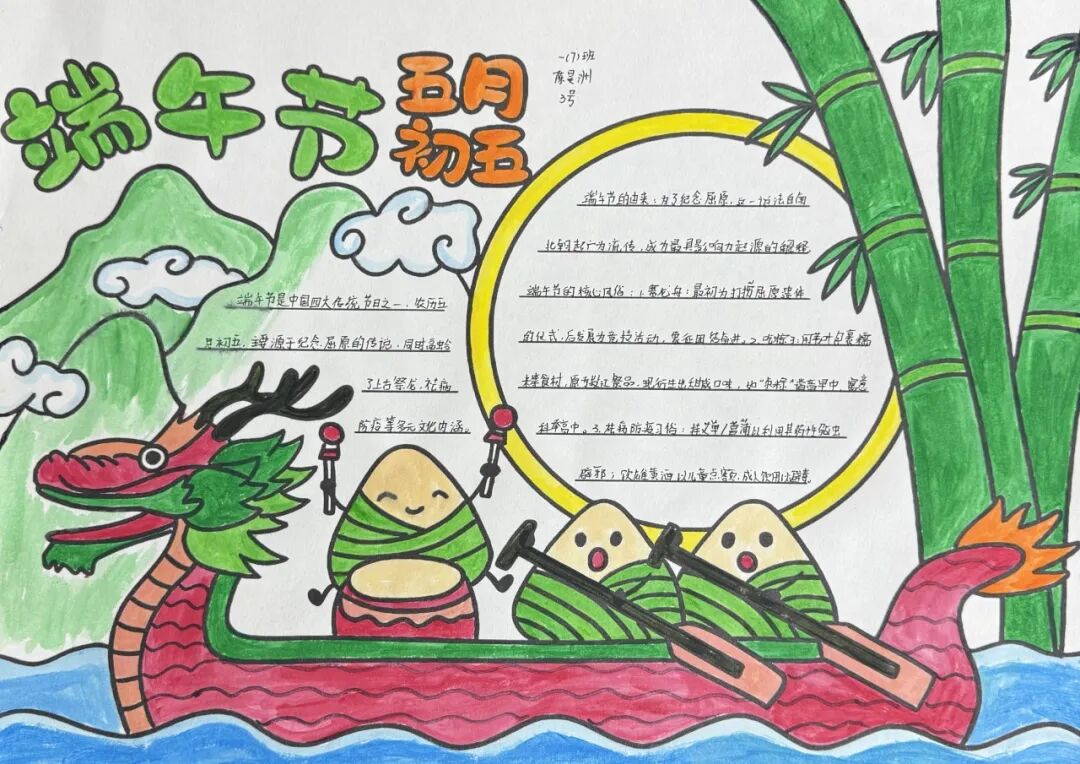 端午节
五月
初五
一(7)班
陈昊洲
3号
端午节是中国四大传统节日之一，农历五
月初五，主要源于纪念屈原的传说，同时融合
了上古祭龙、祛病
防疫等多元文化内涵。
端午节的由来：为了纪念屈原，这一说法自南
北朝起广为流传，成为最具影响力起源的解释
端午节的核心风俗：1.赛龙舟：最初为打捞屈原遗体
的仪式，后发展为竞技活动，象征团结奋进。2.吃粽子：用苇叶包裹糯
米等食材，原为祭品，现衍生出甜咸口味，如"枣粽"谐音早中，寓意
科举高中。3.祛病防疫习俗：挂艾草/菖蒲以利用其药性驱虫
辟邪；饮雄黄酒以儿童点额，成人饮用以避毒